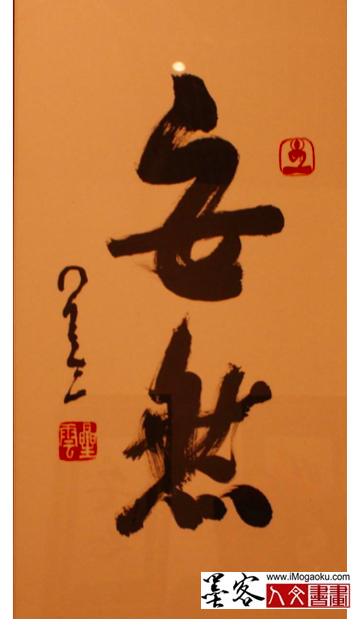 安然
星云
星雲
墨客
www.iMogaoku.com
人文書畫